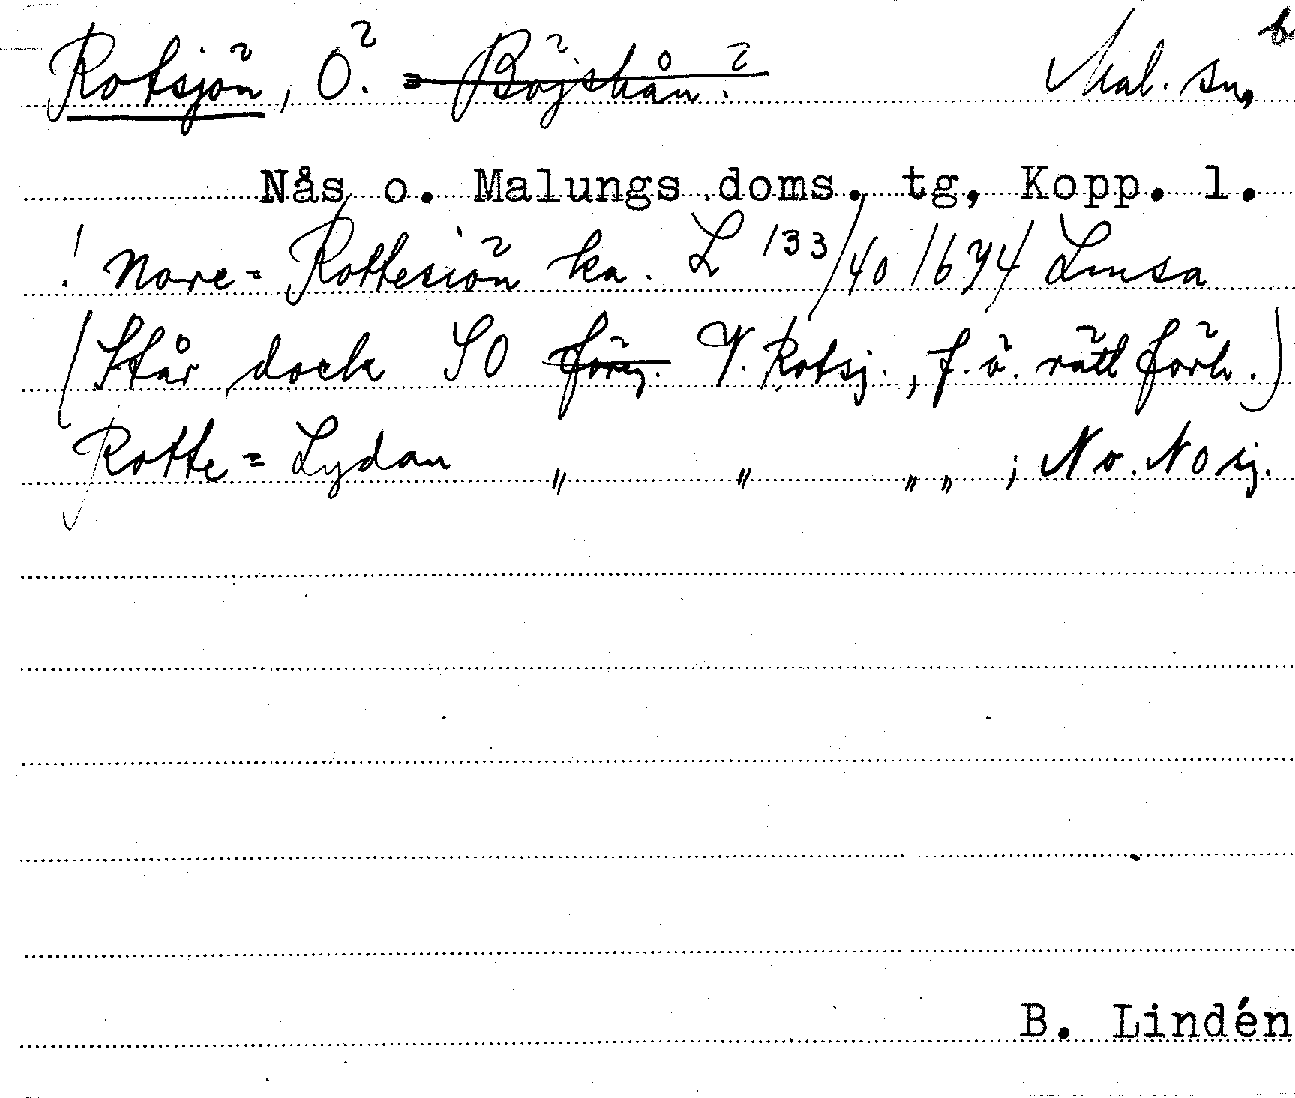 Rotsjön, Ö. = Böjskån? Mal. sn, b
Nås o. Malungs doms. tg, Kopp. l.
! Nore= Rottesiön ka. L 133/40 1674 Limsa
(Står dock SO förg. V. Rotsj., f. ö. rätt förh.)
Rotte = Lydan " " " " ; No. NO sj.
B. Lindén